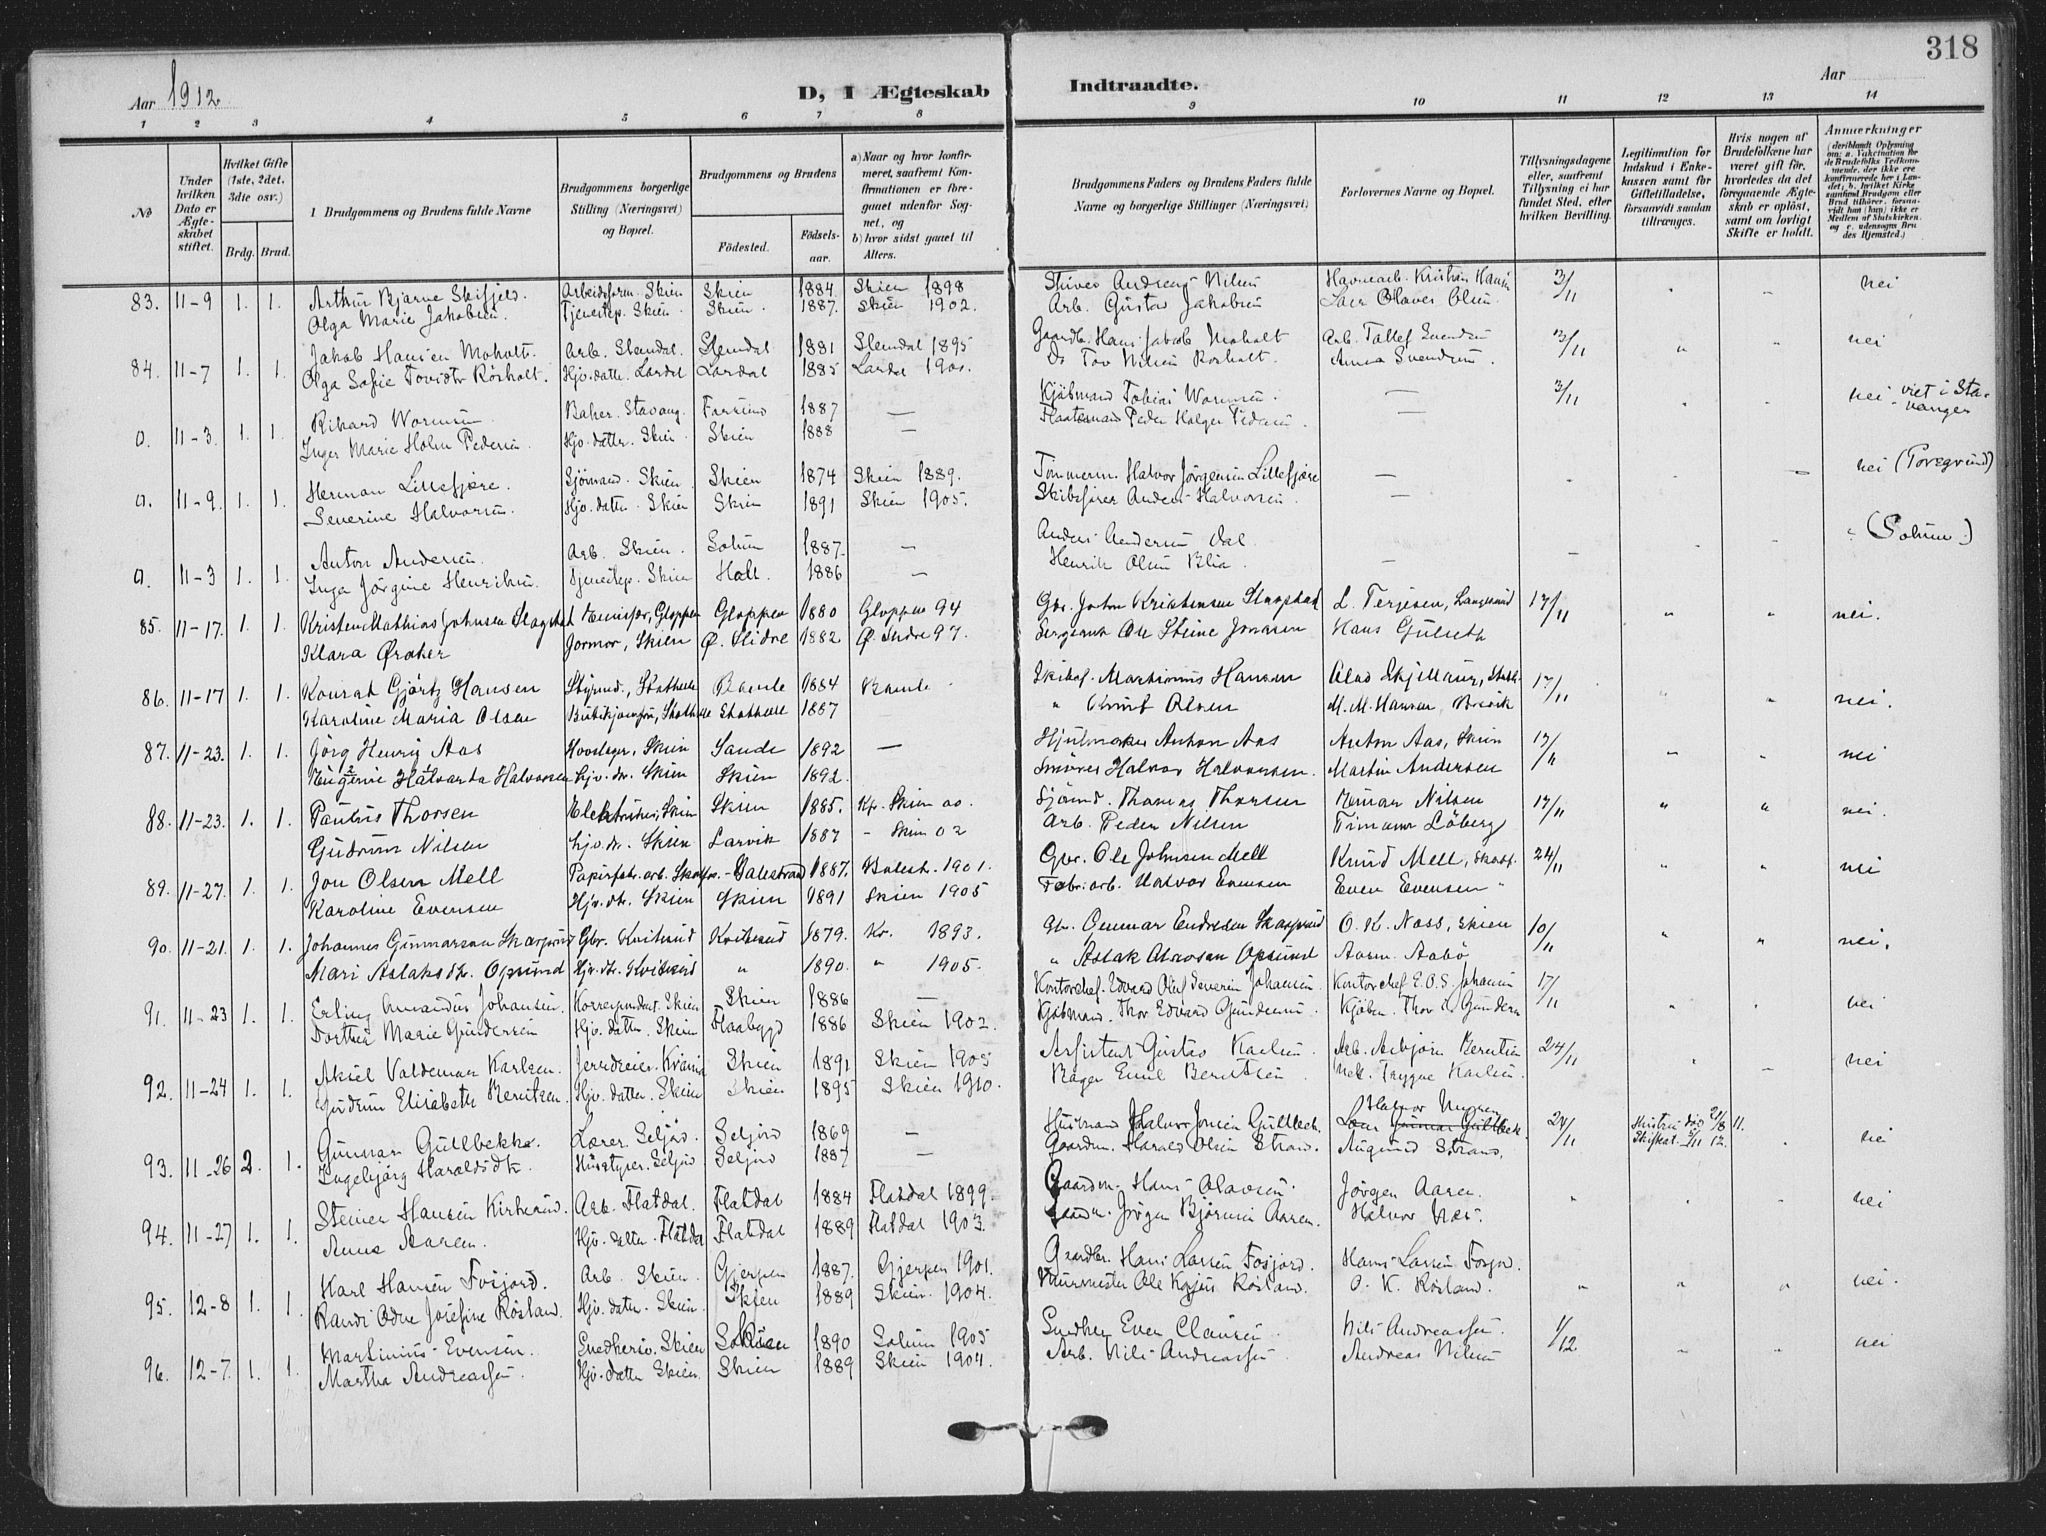 318
Aar 1912
D, I Ægteskab Indtraadte.
Aar
1 2 3 4 5 6 7 8 9 10 11 12 13 14
No
Under hvilken Dato er Ægteskabet stiftet.
Hvilket Gifte (1ste, 2det, 3die osv.)
Brdg. Brud.
1 Brudgommens og Brudens fulde Navne
Brudgommens borgerlige Stilling (Næringsvei) og Bopæl.
Brudgommens og Brudens
Födested.
Födsels-aar.
a) Naar og hvor konfirmeret, saafremt Konfirmationen er foregaaet udenfor Sognet, og
b) hvor sidst gaaet til Alters.
Brudgommens Faders og Brudens Faders fulde Navne og borgerlige Stillinger (Næringsvei)
Forlovernes Navne og Bopæl.
Tillysningsdagene eller, saafremt Tillysning ei har fundet Sted, efter hvilken Bevilling.
Legitimation for Indskud i Enkekassen samt for Giftetilladelse, forsaavidt saadan tiltrænges.
Hvis nogen af Brudefolkene har været gift før, hvorledes da det foregaaende Ægteskab er opløst, samt om lovligt Skifte er holdt.
Anmærkninger
83. 11-9 1. 1. Arthur Bjarne Skifjeld. Arbeidsform. Skien Skien 1884. Skien 1898 Andreas Nilsen Havnearb. Kristian Hansen 3/11 " " nei
Olga Marie Jakobsen. Tjenestep. Skien. Skien. 1887. Skien 1902. Arb. Gustav Jakobsen Olaves Olsen
84. 11-7 1. 1. Jakob Hansen Moholt. Arb. Slemdal. Slemdal 1881 Slemdal 1895 Gaardb. Hans Jakob Moholt Arb. Tallef Svendsen 3/11 " " nei
Olga Sofie Tovsdtr Rösholt. Hjv. datter. Lardal Lardal 1885 Lardal 1900. Do Tov Nilsen Rösholt. Anna Svendsen.
a. 11-3. 1. 1. Rikard Wormsen Baker. Stavang. Farsund 1887 — Kjöbmand Tobias Wormsen. — 3/11 nei - viet i Stavanger
Inger Marie Holm Pedersen. Hjv. datter. Skien Skien 1888 — Peder Holger Pedersen. —
a. 11-9. 1. 1. Herman Lillefjære. Sjömand. Skien. Skien 1874 Skien 1889. Tömmerm. Halvor Jörgensen Lillefjære — nei (Porsgrund)
Severine Halvorsen. Hjv. datter. Skien Skien 1891 Skien 1905. Skibsförer Anders Halvorsen. —
a. 11-3 1. 1. Anton Andersen. Arb. Skien. Solum 1887. — Anders Andersen Dal. — " (Solum.)
Inga Jörgine Henriksen. Tjenestep. Skien Holt. 1886 — Henrik Olsen Blia.
85. 11-17. 1. 1. Kristen Mathias Johnsen Slagstad Gloppen Gloppen 1880 Gloppen 94 Gbr. John Kristensen Slagstad L. Terjesen, Langesund 17/11 " " nei.
Klara Öraker Jormor, Skien Ø. Slidre 1882 Ø. Slidre 97. Sergeant Ole Steine Jonasen Hans Gulseth
86. 11-17 1. 1. Konrad Gjörtz Hansen Styrmd., Stathelle Bamle 1884 Bamle - Skibsf. Martinius Hansen Stath. 17/11 " " nei.
Karoline Maria Olsen Stathelle Stathelle 1887 — " Knut Olsen M. M. Hansen, Brevik
87. 11-23. 1. 1. Jörg Henrig Aas Hovslager, Skien Sande 1892 — Hjulmaker Anton Aas Anton Aas, Skien 17/11 " " nei
Eugenie Halvarda Halvorsen hjv. dr. Skien Skien 1892. Halvor Halvorsen. Martin Andersen
88. 11-23. 1. 1. Paulus Thorsen Skien Skien 1885. Kf. Skien 00. Sjömd. Thomas Thorsen Einar Nilsen 17/11 " " nei.
Gudrun Nilsen hjv. dr. Skien Larvik 1887 - Skien 02 Arb. Peder Nilsen Löberg
89. 11-27. 1. 1. Jon Olsen Mell Papirfabr. arb. Skotfos.- Balestrand 1887. Balestr. 1901. Gbr. Ole Johnsen Mell Knud Mell, Skotf. 24/11 " " nei
Karoline Evensen Hjv. dtr. Skien Skien 1891 Skien 1905 Fabr. arb. Halvor Evensen Even Evensen "
90. 11-21. 1. 1. Johannes Gunnarson Skarprud Gbr. Kvitesid Kvitesid 1879. Kv. 1893. Gbr. Gunnar Endresen Skarprud O. K. Nass, Skien 10/11 " " nei.
Mari Aslaksdtr. Opsund Hjv. dtr. Kvitesid " 1890. " 1905. " Aslak Olavsen Opsund Aasm. Aabö
91. 11-23 1. 1. Erling Amandus Johansen. Korrespondent. Skien Skien 1886 — Kontorchef. Edvard Oluf Severin Johansen. Kontorchef E. O. S. Johansen 17/11 " " nei
Dorthea Marie Gundersen Hjv. datter. Skien Flaabygd 1886 Skien 1902. Kjöbmand. Thor Edvard Gundersen Kjöbm. Thor E. Gundersen
92. 11-24 1. 1. Aksel Valdemar Karlsen. Skien 1891 Skien 1905 Assistent Gustav Karlsen. Arb. Asbjörn Berntsen 24/11 " — nei
Gudrun Elisabeth Berntsen. Hjv. datter. Skien Skien 1895 Skien 1910. Bager Emil Berntsen. Trygve Karlsen.
93. 11-26 2. 1. Gunnar Gullbekke. Lærer. Seljord. Seljord 1869 — Husmand Halvor Jonsen Gullbek. Halvor 24/11 Hustru död 21/8 11. nei
Ingebjörg Haraldsdtr. Seljord Seljord 1887 — Gaardm. Harald Olsen Strand. Augund Strand. Skifteat. 12.
94. 11-27 1. 1. Steiner Hansen Kirkerud. Arb. Flatdal. Flatdal 1884 Flatdal 1899. Gaardm. Hans Olavsen. Jörgen Aaren. " nei
Anne Aaren. Hjv. datter. Flatdal Flatdal 1889 Flatdal 1903. Jörgen Björnsen Aaren. Halvor Næs.
95. 12-8 1. 1. Karl Hansen Fosjord. Arb. Skien. Gjerpen 1887. Gjerpen 1901. Gaardbr. Hans Larsen Fosjord. Hans Larsen Fosjor. " " " nei.
Randi Odne Josefine Rösland. Hjv. datter. Skien. Skien 1889 Skien. 1904. Murmester Ole Rösland. O. K. Rösland.
96. 12-7. 1. 1. Martinius Evensen. Snedkersv. Skien Solum 1890 Solum 1905 Snedker Even Clausen. Nils Andreassen. 1/12 " " nei
Martha Andreassen. Hjv. datter Skien. Skien 1889 Skien 1904. Arb. Nils Andreassen Andreas Nilsen